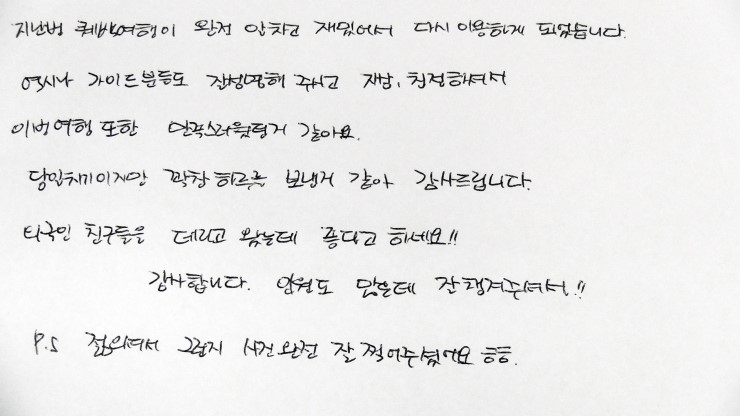 지난번 퀘백여행이 완전 알차고 재밌어서 다시 이용하게 되었습니다.
역시나 가이드분들도 잘설명해 주시고 재밌, 친절하셔서
이번여행 또한 만족스러웠던거 같아요.
당일치기이지만 꽉찬 하루를 보낸거 같아 감사드립니다.
타국인 친구들을 데리고 왔는데 좋다고 하네요!!
감사합니다. 인원도 많은데 잘챙겨주셔서.!!
P.S 젊으셔서 그런지 사진완전 잘 찍어주셨어요 ㅎㅎ.